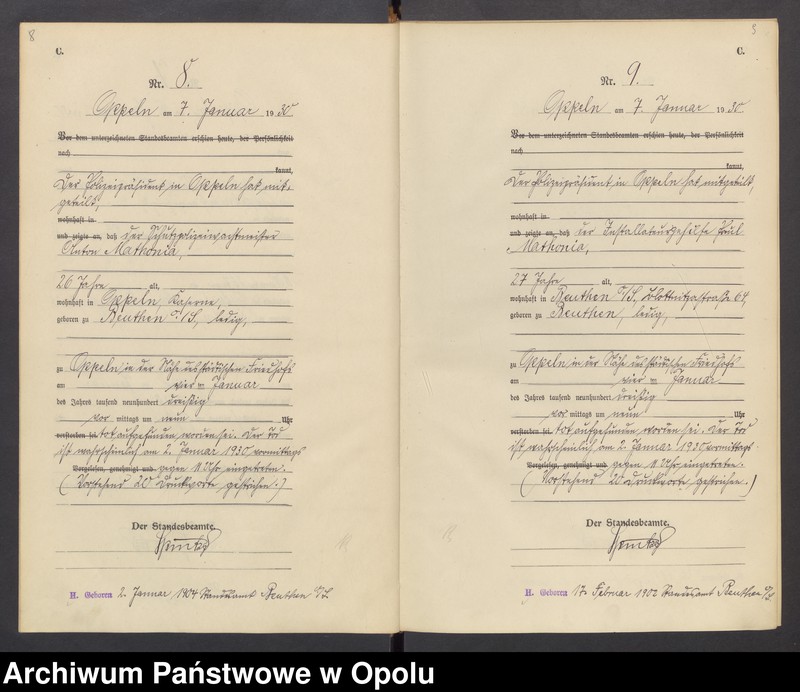 8
C.
Nr. 8.
Oppeln am 7. Januar 1930
Vor dem unterzeichneten Standesbeamten erschien heute, der Persönlichkeit
nach
kannt,
Der Polizeipräsident in Oppeln hat mit-
geteilt,
wohnhaft in
und zeigte an, daß der Schutzpolizeiwachtmeister
Anton Mathonia,
26 Jahre alt,
wohnhaft in Oppeln, Kaserne,
geboren zu Beuthen O/S, ledig,
zu Oppeln in der Nähe des städtischen Friedhofs
am vierten Januar
des Jahres tausend neunhundert dreißig
vor mittags um neun Uhr
verstorben sei. tot aufgefunden worden sei. Der Tod
ist wahrscheinlich am 2. Januar 1930 vormittags
Vorgelesen, genehmigt und gegen 1 Uhr eingetreten.
(Vorstehend 20 Druckworte gestrichen.)
Der Standesbeamte.
H. Geboren 2. Januar 1904 Standesamt Beuthen O/S.
C.
Nr. 9.
Oppeln am 7. Januar 1930
Vor dem unterzeichneten Standesbeamten erschien heute, der Persönlichkeit
nach
kannt,
Der Polizeipräsident in Oppeln hat mitgeteilt,
wohnhaft in
und zeigte an, daß der Installateurgehilfe Paul
Mathonia,
27 Jahre alt,
wohnhaft in Beuthen O/S, Blottnitzastraße 64,
geboren zu Beuthen, ledig,
zu Oppeln in der Nähe des städtischen Friedhofs
am vierten Januar
des Jahres tausend neunhundert dreißig
vor mittags um neun Uhr
verstorben sei. tot aufgefunden worden sei. Der Tod
ist wahrscheinlich am 2. Januar 1930 vormittags
Vorgelesen, genehmigt und gegen 1 Uhr eingetreten.
(Vorstehend 20 Druckworte gestrichen.)
Der Standesbeamte.
H. Geboren 17. Februar 1902 Standesamt Beuthen O/S
Archiwum Państwowe w Opolu